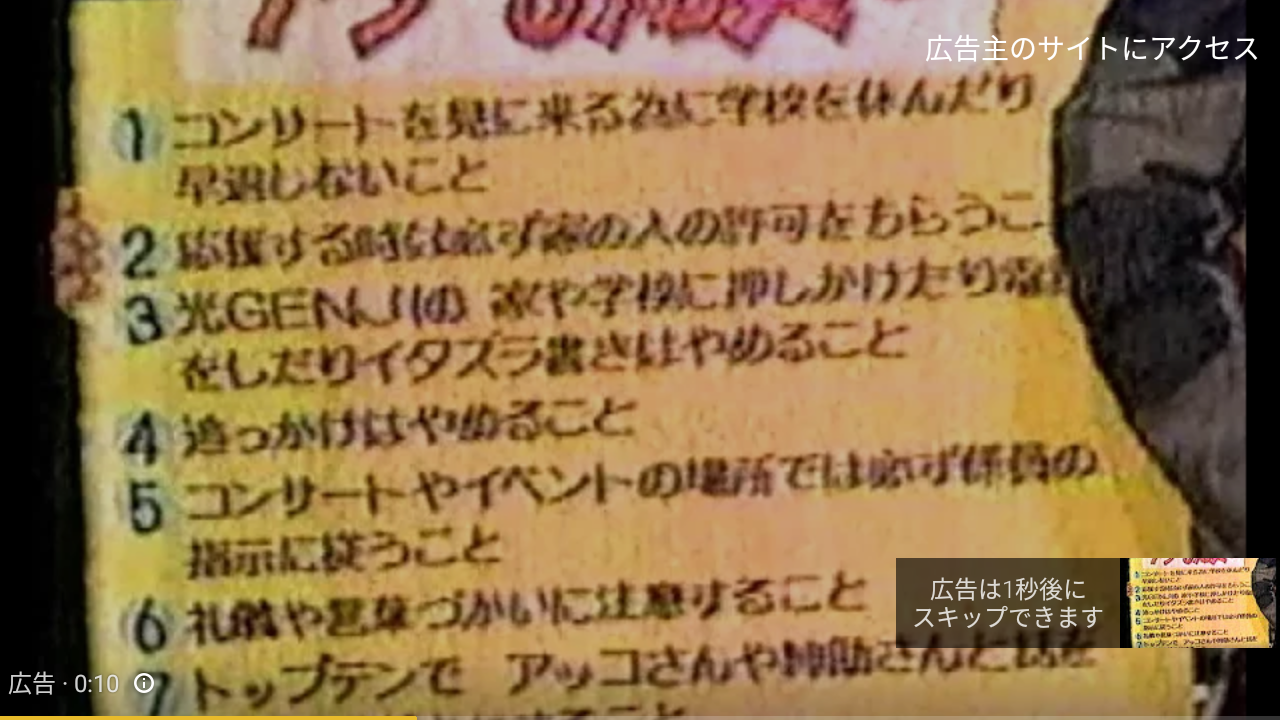 広告主のサイトにアクセス
1 コンサートを見に来る為に学校を休んだり
早退しないこと
2 応援する時は必ず家の人の許可をもらうこ
3 光GENJIの 家や学校に押しかけたり
をしたりイタズラ書きはやめること
4 追っかけはやめること
5 コンサートやイベントの場所では必ず係員の
指示に従うこと
6 礼儀や言葉づかいに注意すること
7 トップテンで アッコさんや
広告は1秒後に
スキップできます
広告・0:10